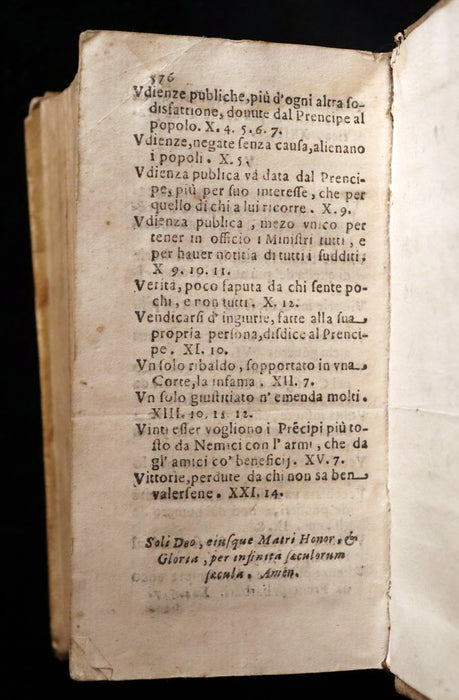 576
Vdienze publiche, più d'ogni altra so-
disfattione, douute dal Prencipe al
popolo. X. 4. 5. 6. 7.
Vdienze, negate senza causa, alienano
i popoli. X. 5.
Vdienza publica và data dal Prenci-
pe, più per suo interesse, che per
quello di chi a lui ricorre. X. 9.
Vdienza publica, mezo vnico per
tener in officio i Ministri tutti, e
per hauer notitia di tutti i sudditi.
X 9. 10. 11.
Verità, poco saputa da chi sente po-
chi, e non tutti. X. 12.
Vendicarsi d'ingiurie, fatte alla sua
propria persona, disdice al Prenci-
pe. XI. 10.
Vn solo ribaldo, sopportato in vna
Corte, la infama. XII. 7.
Vn solo giustitiato n'emenda molti.
XIII. 10. 11. 12.
Vinti esser vogliono i Prẽcipi più to-
sto da Nemici con l'armi, che da
gl'amici co' beneficij. XV. 7.
Vittorie, perdute da chi non sa ben
valersene. XXI. 14.
Soli Deo, eiusque Matri Honor, &
Gloria, per infinita sæculorum
sæcula. Amen.